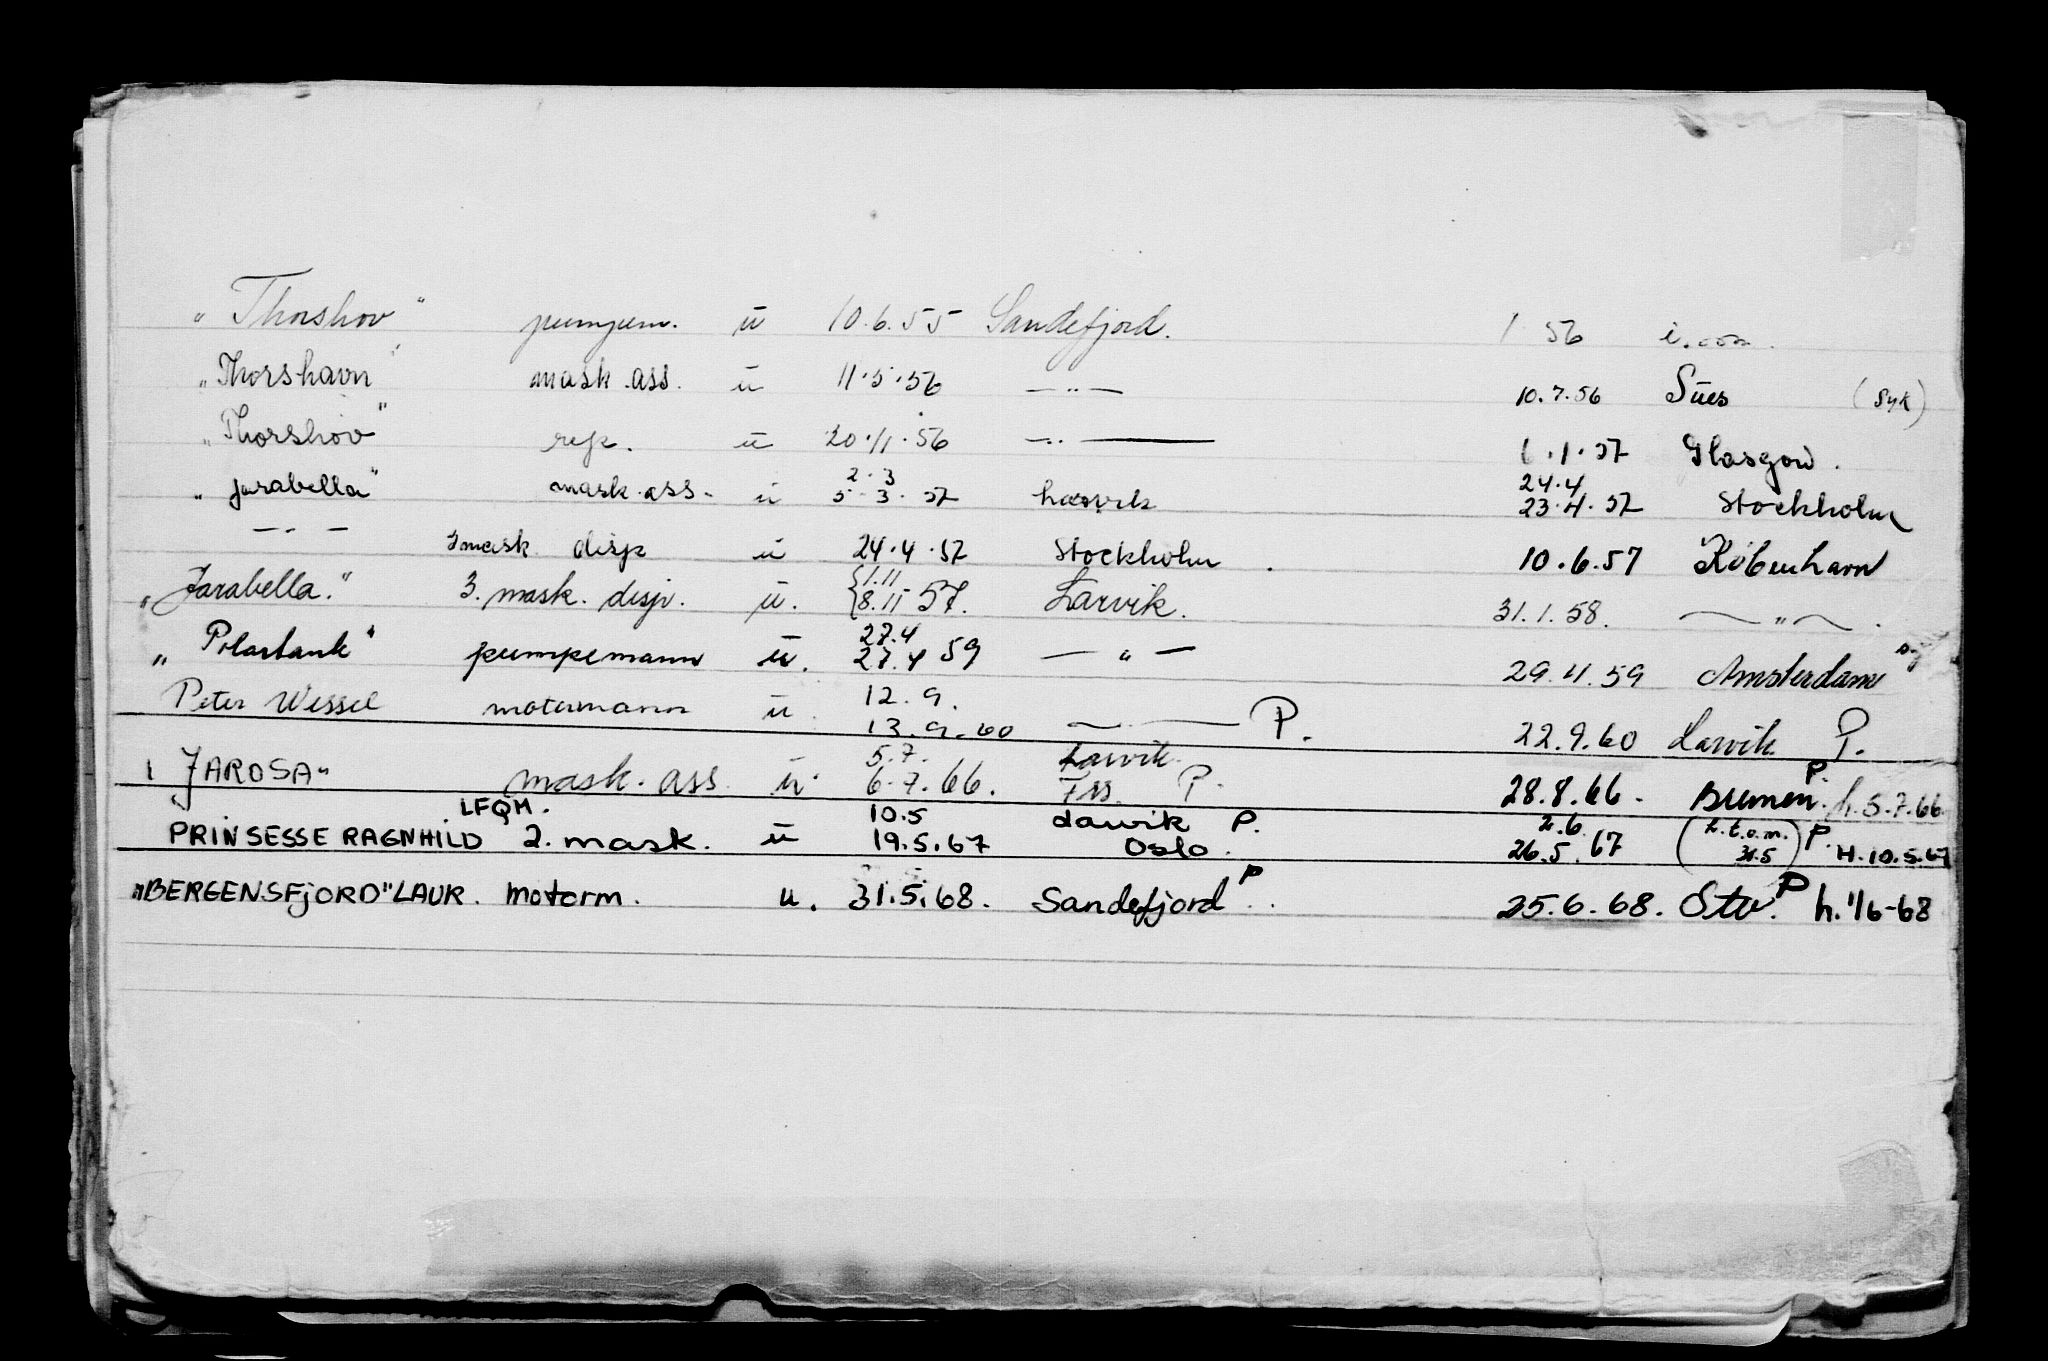 „Thorshov" pumpem. ü 10.6.55 Sandefjord. 1 56
„Thorshavn" mask.ass. ü 11.5.56 — " — 10.7.56 Sües (syk)
„Thorshov" rep. ü 20.11.56 — " — 1.1.57 Glasgow.
2.3 24.4
„Jarabella" mask.ass. ü 5.3.57 Larvik 23.4.57 Stockholm
— " — 3 mask disp ü 24.4.57 Stockholm. 10.6.57 København
1.11
„Jarabella." 3. mask. disp. ü. 8.11 57. Larvik. 31.1.58. — " —.
27.4
„Polartank" pumpemann ü. 27.4 59 — " — 29.11.59 Amsterdam
12.9.
Peter Wessel motormann ü. 13.9.60 — " — P. 22.9.60 Larvik P.
5.7. Larvik. P.
JAROSA" mask. ass ü. 6.7.66. P. 28.8.66. Bremen. h.5.7.66
LFQM. 10.5 Larvik P. 2.6 (h.t.o.m.
PRINSESSE RAGNHILD 2. mask. ü 19.5.67 Oslo. 26.5.67 31.5) P. H.10.5.67
„BERGENSFJORD" LAUR. motorm. u. 31.5.68. Sandefjord P. 25.6.68. Stv. P h. 1/6-68